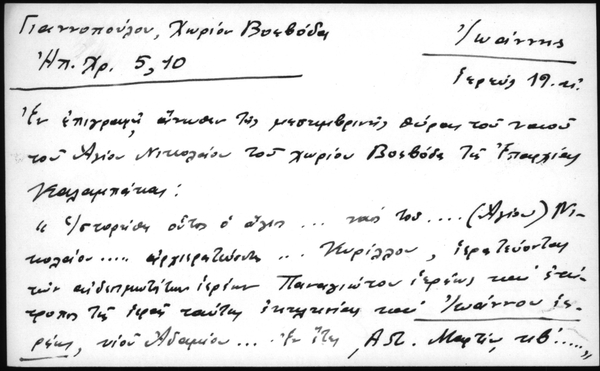 Γιαννοπούλου, Χωρίον Βοεβόδα
Ἠπ. Χρ. 5, 10
Ἰωάννης
ἱερεύς 19. αἰ.
Ἐν ἐπιγραφῇ ἄνωθεν τῆς μεσημβρινῆς θύρας τοῦ ναοῦ
τοῦ Ἁγίου Νικολάου τοῦ χωρίου Βοεβόδα τῆς Ἐπαρχίας
Καλαμπάκας:
"Ἱστορήθη οὗτος ὁ ἅγιος ... ναός τοῦ .... (Ἁγίου) Νι-
κολάου ..... ἀρχιερατεύοντος ... Κυρίλλου, ἱερατεύοντος
τῶν αἰδεσιμωτάτων ἱερέων Παναγιώτου ἱερέως καί ἐπι-
τρόπος τῆς ἱερᾶς ταύτης ἐκκλησίας καί Ἰωάννου ἱε-
ρέως, υἱοῦ Ἀδαμίου ... Ἐν ἔτει Μαρτίου κβ´ ....."